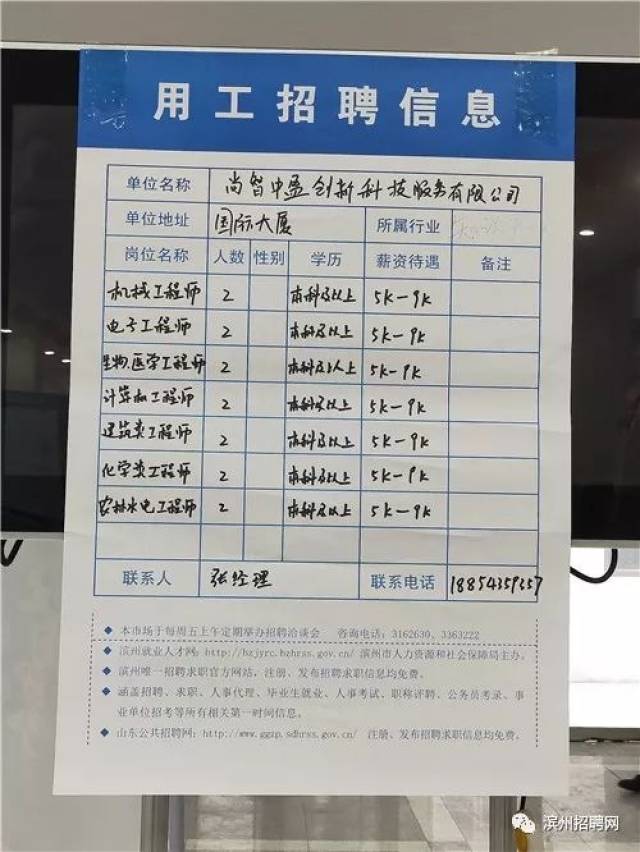 用工招聘信息
单位名称 尚智中盈创新科技服务有限公司
单位地址 国际大厦 所属行业
岗位名称 人数 性别 学历 薪资待遇 备注
机械工程师 2 本科及以上 5K-9K
电子工程师 2 本科及以上 5K-9K
生物.医学工程师 2 本科及以上 5K-9K
计算机工程师 2 本科及以上 5K-9K
建筑类工程师 2 本科及以上 5K-9K
化学类工程师 2 本科及以上 5K-9K
农林水电工程师 2 本科及以上 5K-9K
联系人 张经理 联系电话 18854359357
◆ 本市场于每周五上午定期举办招聘洽谈会 咨询电话：3162630、3363222
◆ 滨州就业人才网：http://bzjyrc.bzhrss.gov.cn/ 滨州市人力资源和社会保障局主办。
◆ 滨州唯一招聘求职官方网站，注册、发布招聘求职信息均免费。
◆ 涵盖招聘、求职、人事代理、毕业生就业、人事考试、职称评聘、公务员考录、事
业单位招考等所有相关第一时间信息。
◆ 山东公共招聘网：http://www.ggzp.sdhrss.gov.cn/ 注册、发布招聘求职信息均免费。
滨州招聘网